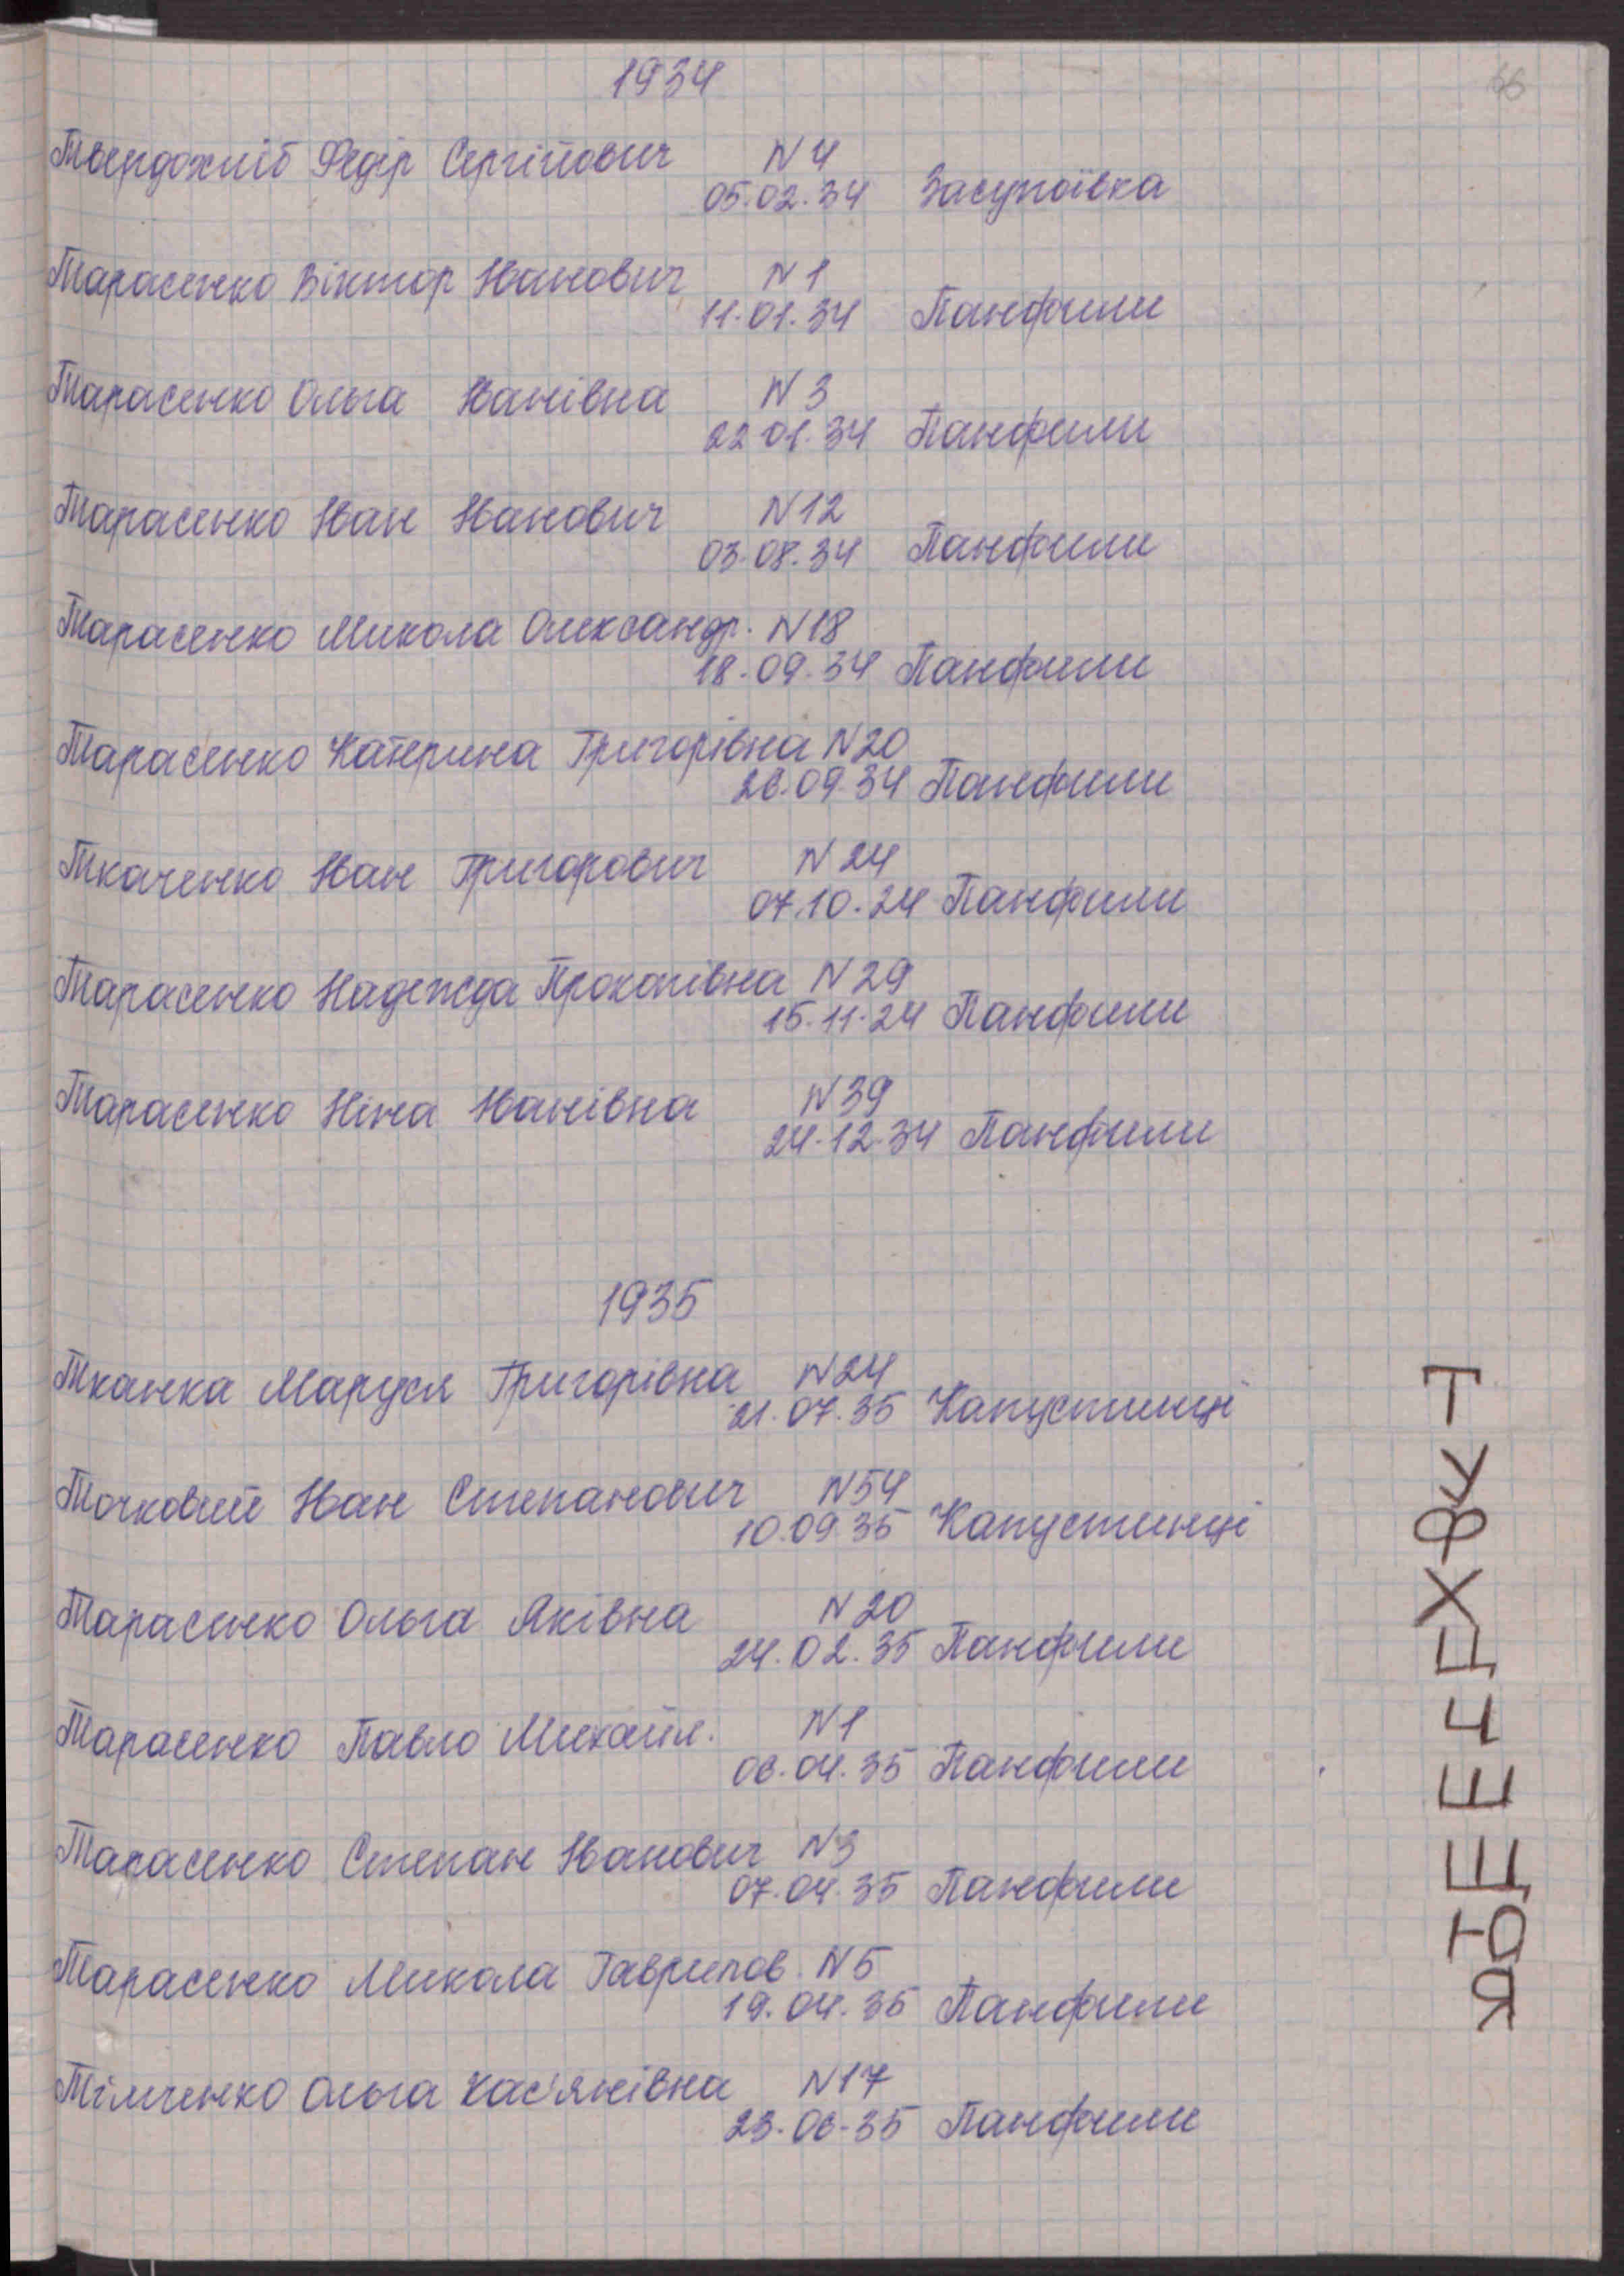 66
1934
Твердохліб Федір Сергійович N 4
05.02.34 Засупоївка
Тарасенко Віктор Іванович N 1
11.01.34 Панфили
Тарасенко Ольга Іванівна N 3
22 01.34 Панфили
Тарасенко Іван Іванович N 12
03.08.34 Панфили
Тарасенко Микола Олександр. N 18
18.09.34 Панфили
Тарасенко Катерина Григорівна N 20
26.09.34 Панфили
Ткаченко Іван Григорович N 24
07.10.24 Панфили
Тарасенко Надежда Прокопівна N 29
15.11.24 Панфили
Тарасенко Ніна Іванівна N 39
24.12.34 Панфили
1935
Тканка Маруся Григорівна N 24
21.07.35 Капустинці
Точковий Іван Степанович N 54
10.09.35 Капустинці
Тарасенко Ольга Яківна N 20
24.02.35 Панфили
Тарасенко Павло Михайл. N 1
06.04.35 Панфили
Тарасенко Степан Іванович N 3
07.04.35 Панфили
Тарасенко Микола Гаврилов. N 5
19.04.35 Панфили
Тімченко Ольга Кас'янівна N 17
23.06.35 Панфили
Т
У
Ф
Х
Ц
Ч
Ш
Щ
Ю
Я